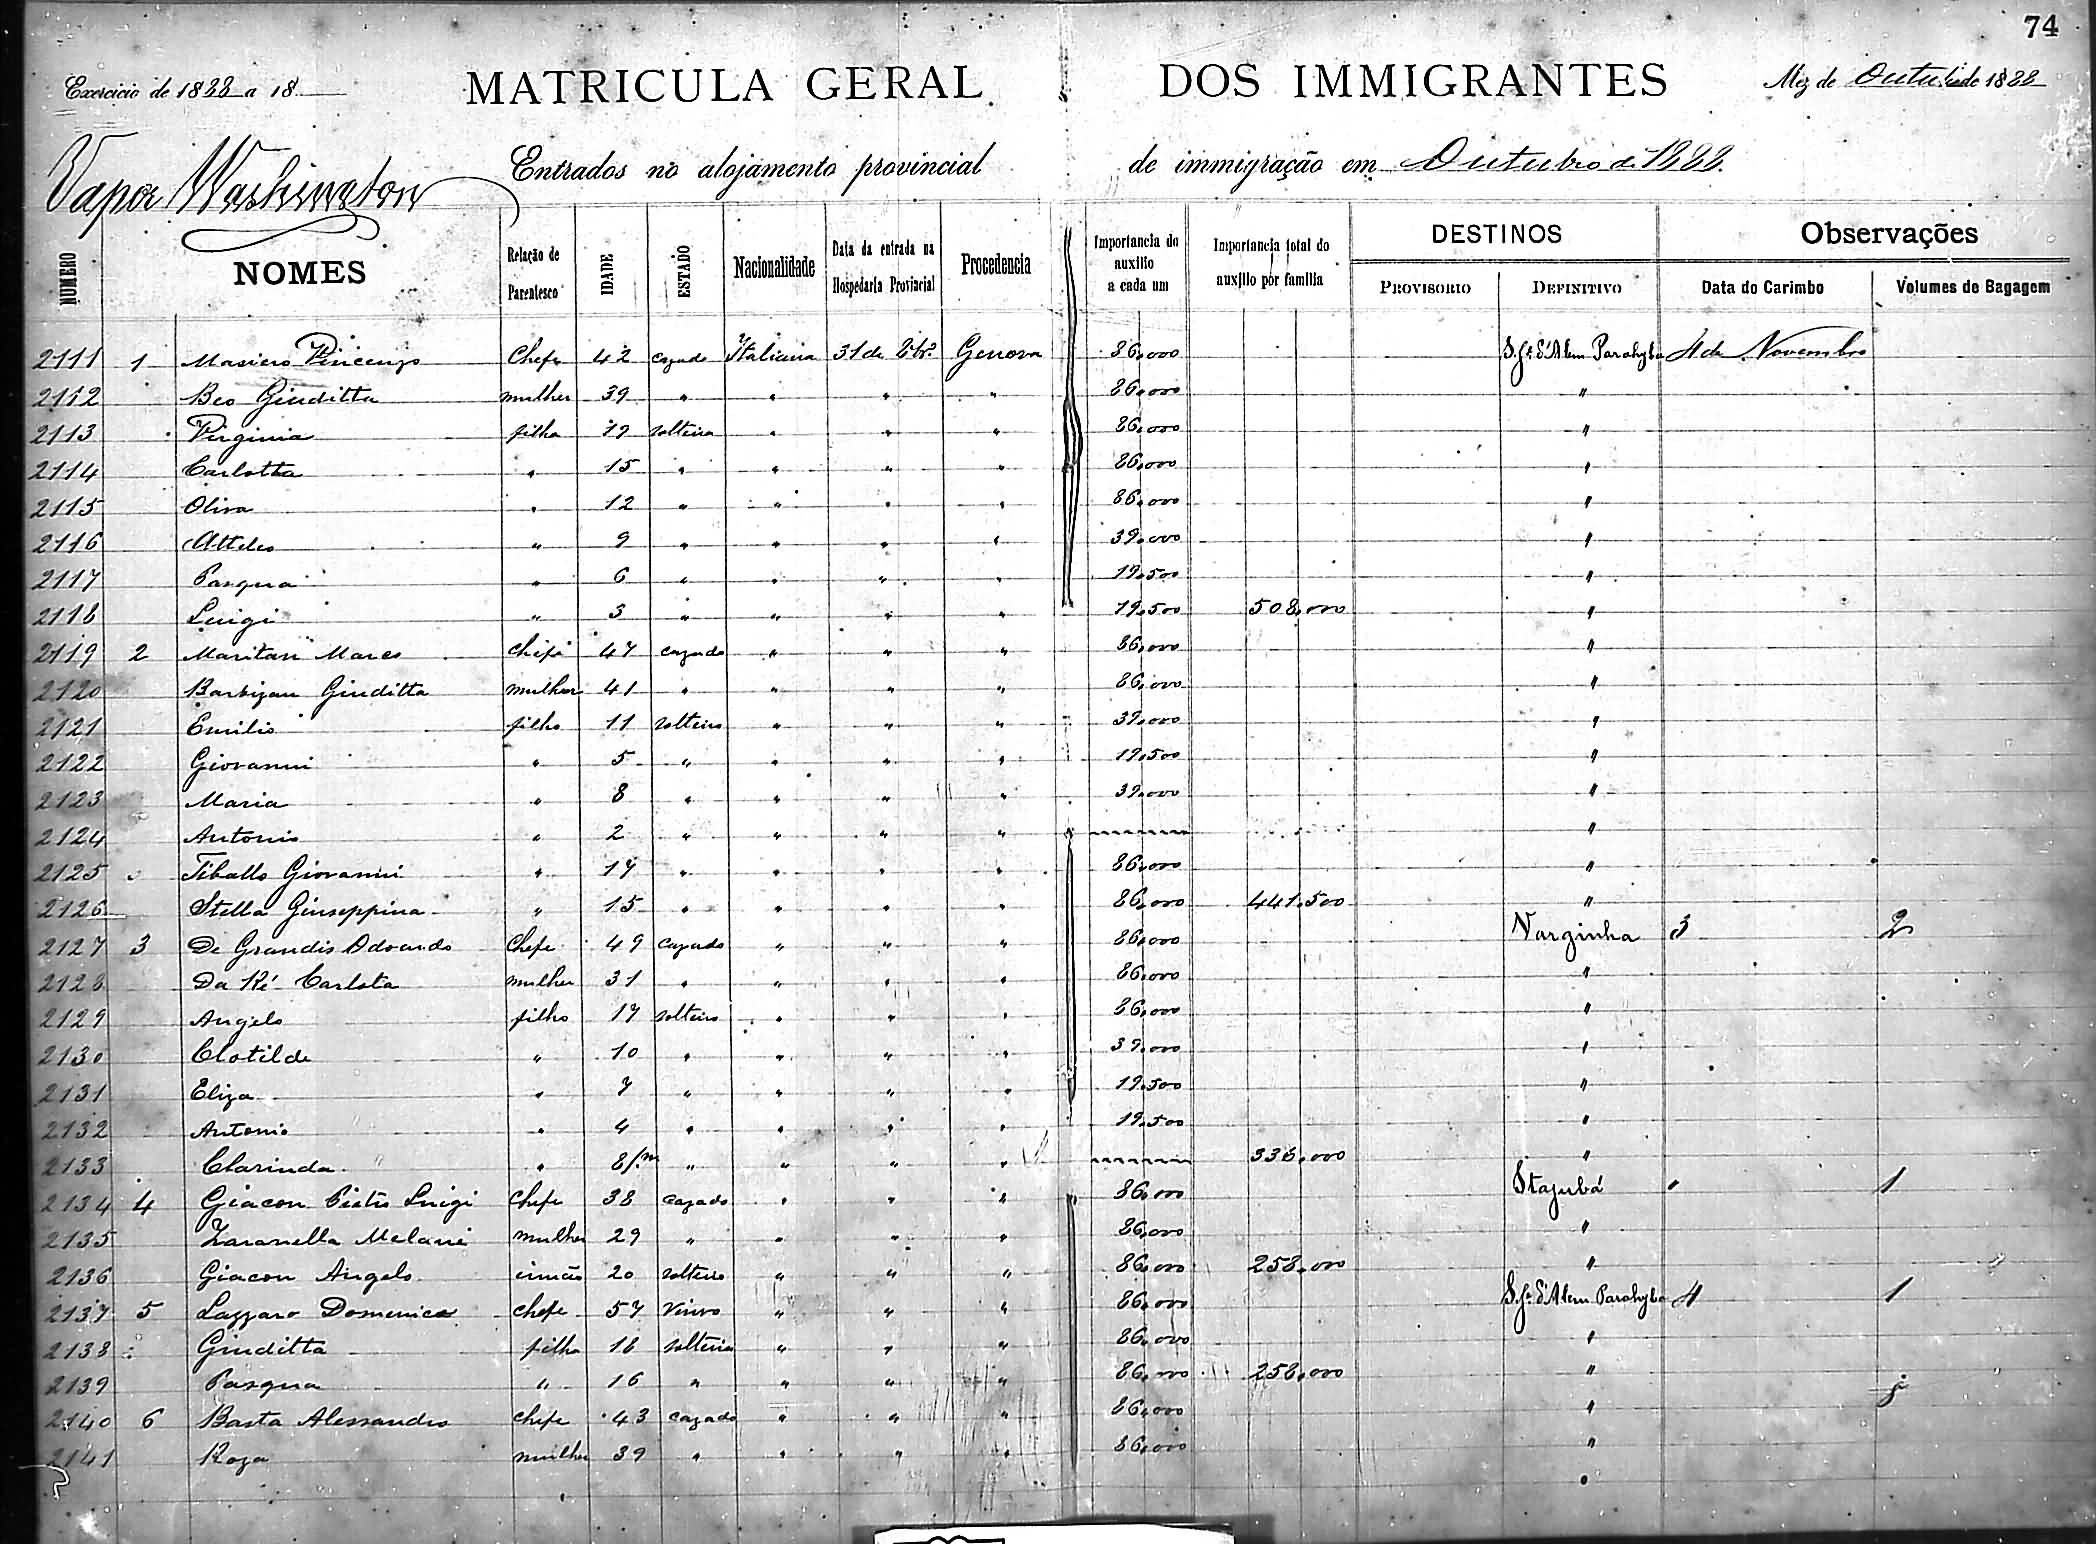 74
Exercicio de 1888 a 18
MATRICULA GERAL DOS IMMIGRANTES
Mez de Outubro de 1888
Vapor Washington
Entrados no alojamento provincial de immigração em Outubro de 1888.
NUMERO NOMES Relação de Parentesco IDADE ESTADO Nacionalidade Data da entrada na Hospedaria Provincial Procedencia Importancia do auxilio a cada um Importancia total do auxilio por familia DESTINOS PROVISORIO DEFINITIVO Observações Data do Carimbo Volumes de Bagagem
2111 1 Masiero Vincenzo Chefe 42 cazado Italiana 31 de 8bro Genova 86,000 S. Je d'Alem Parahyba 4 de Novembro
2112 Beo Giuditta mulher 39 " " " " 86,000 "
2113 Virginia filha 19 solteira " " " 86,000 "
2114 Carlotta " 15 " " " " 86,000 "
2115 Oliva " 12 " " " " 86,000 "
2116 " 9 " " " " 39,000 "
2117 Pasqua " 6 " " " " 19,500 "
2118 Luigi " 3 " " " " 19,500 508,000 "
2119 2 Maritan Marco chefe 47 cazado " " " 86,000 "
2120 Barbizan Giuditta mulher 41 " " " " 86,000 "
2121 Emilio filho 11 solteiro " " " 39,000 "
2122 Giovanni " 5 " " " " 19,500 "
2123 Maria " 8 " " " " 39,000 "
2124 Antonio " 2 " " " " "
2125 Tiballo Giovanni " 17 " " " " 86,000 "
2126 Stella Giuseppina " 15 " " " " 86,000 441,500 "
2127 3 De Grandis Odoardo Chefe 49 cazado " " " 86,000 Varginha 3 2
2128 Da Ré Carlota mulher 31 " " " " 86,000 "
2129 Angelo filho 17 solteiro " " " 86,000 "
2130 Clotilde " 10 " " " " 39,000 "
2131 Eliza " 7 " " " " 19,500 "
2132 Antonio " 4 " " " " 19,500 "
2133 Clarinda " 8/m " " " " 336,000 "
2134 4 Giacon Pietro Luigi Chefe 38 cazado " " " 86,000 Itajubá " 1
2135 Zaranella Melanie mulher 29 " " " " 86,000 "
2136 Giacon Angelo irmão 20 solteiro " " " 86,000 258,000 "
2137 5 Lazzaro Domenico chefe 57 Viuvo " " " 86,000 S. Je d'Alem Parahyba 4 1
2138 Giuditta filha 18 solteira " " " 86,000 "
2139 Pasqua " 16 " " " " 86,000 258,000 "
2140 6 Basta Alessandro chefe 43 cazado " " " 86,000 "
2141 Roza mulher 39 " " " " 86,000 "